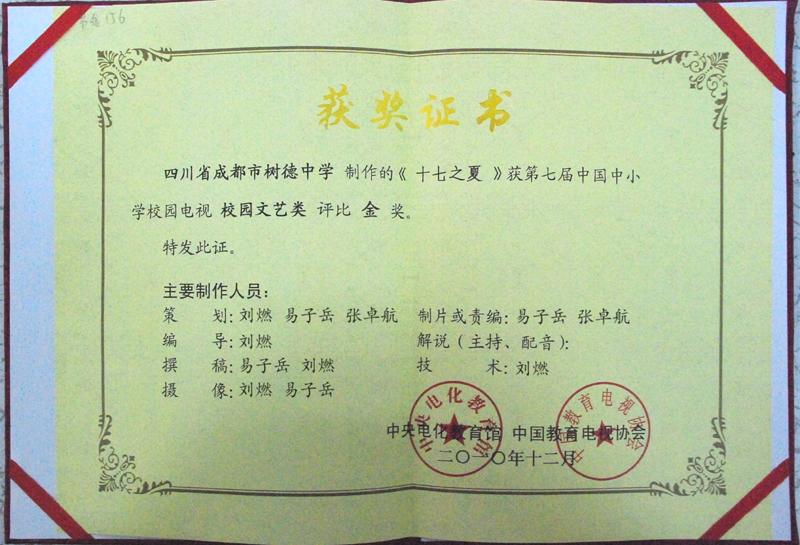 获奖证书
四川省成都市树德中学 制作的《 十七之夏 》获第七届中国中小
学校园电视 校园文艺类 评比 金 奖。
特发此证。
主要制作人员：
策 划：刘燃 易子岳 张卓航 制片或责编：易子岳 张卓航
编 导：刘燃 解说（主持、配音）：
撰 稿：易子岳 刘燃 技 术：刘燃
摄 像：刘燃 易子岳
中央电化教育馆 中国教育电视协会
二〇一〇年十二月
中央电化教育馆
中国教育电视协会
156